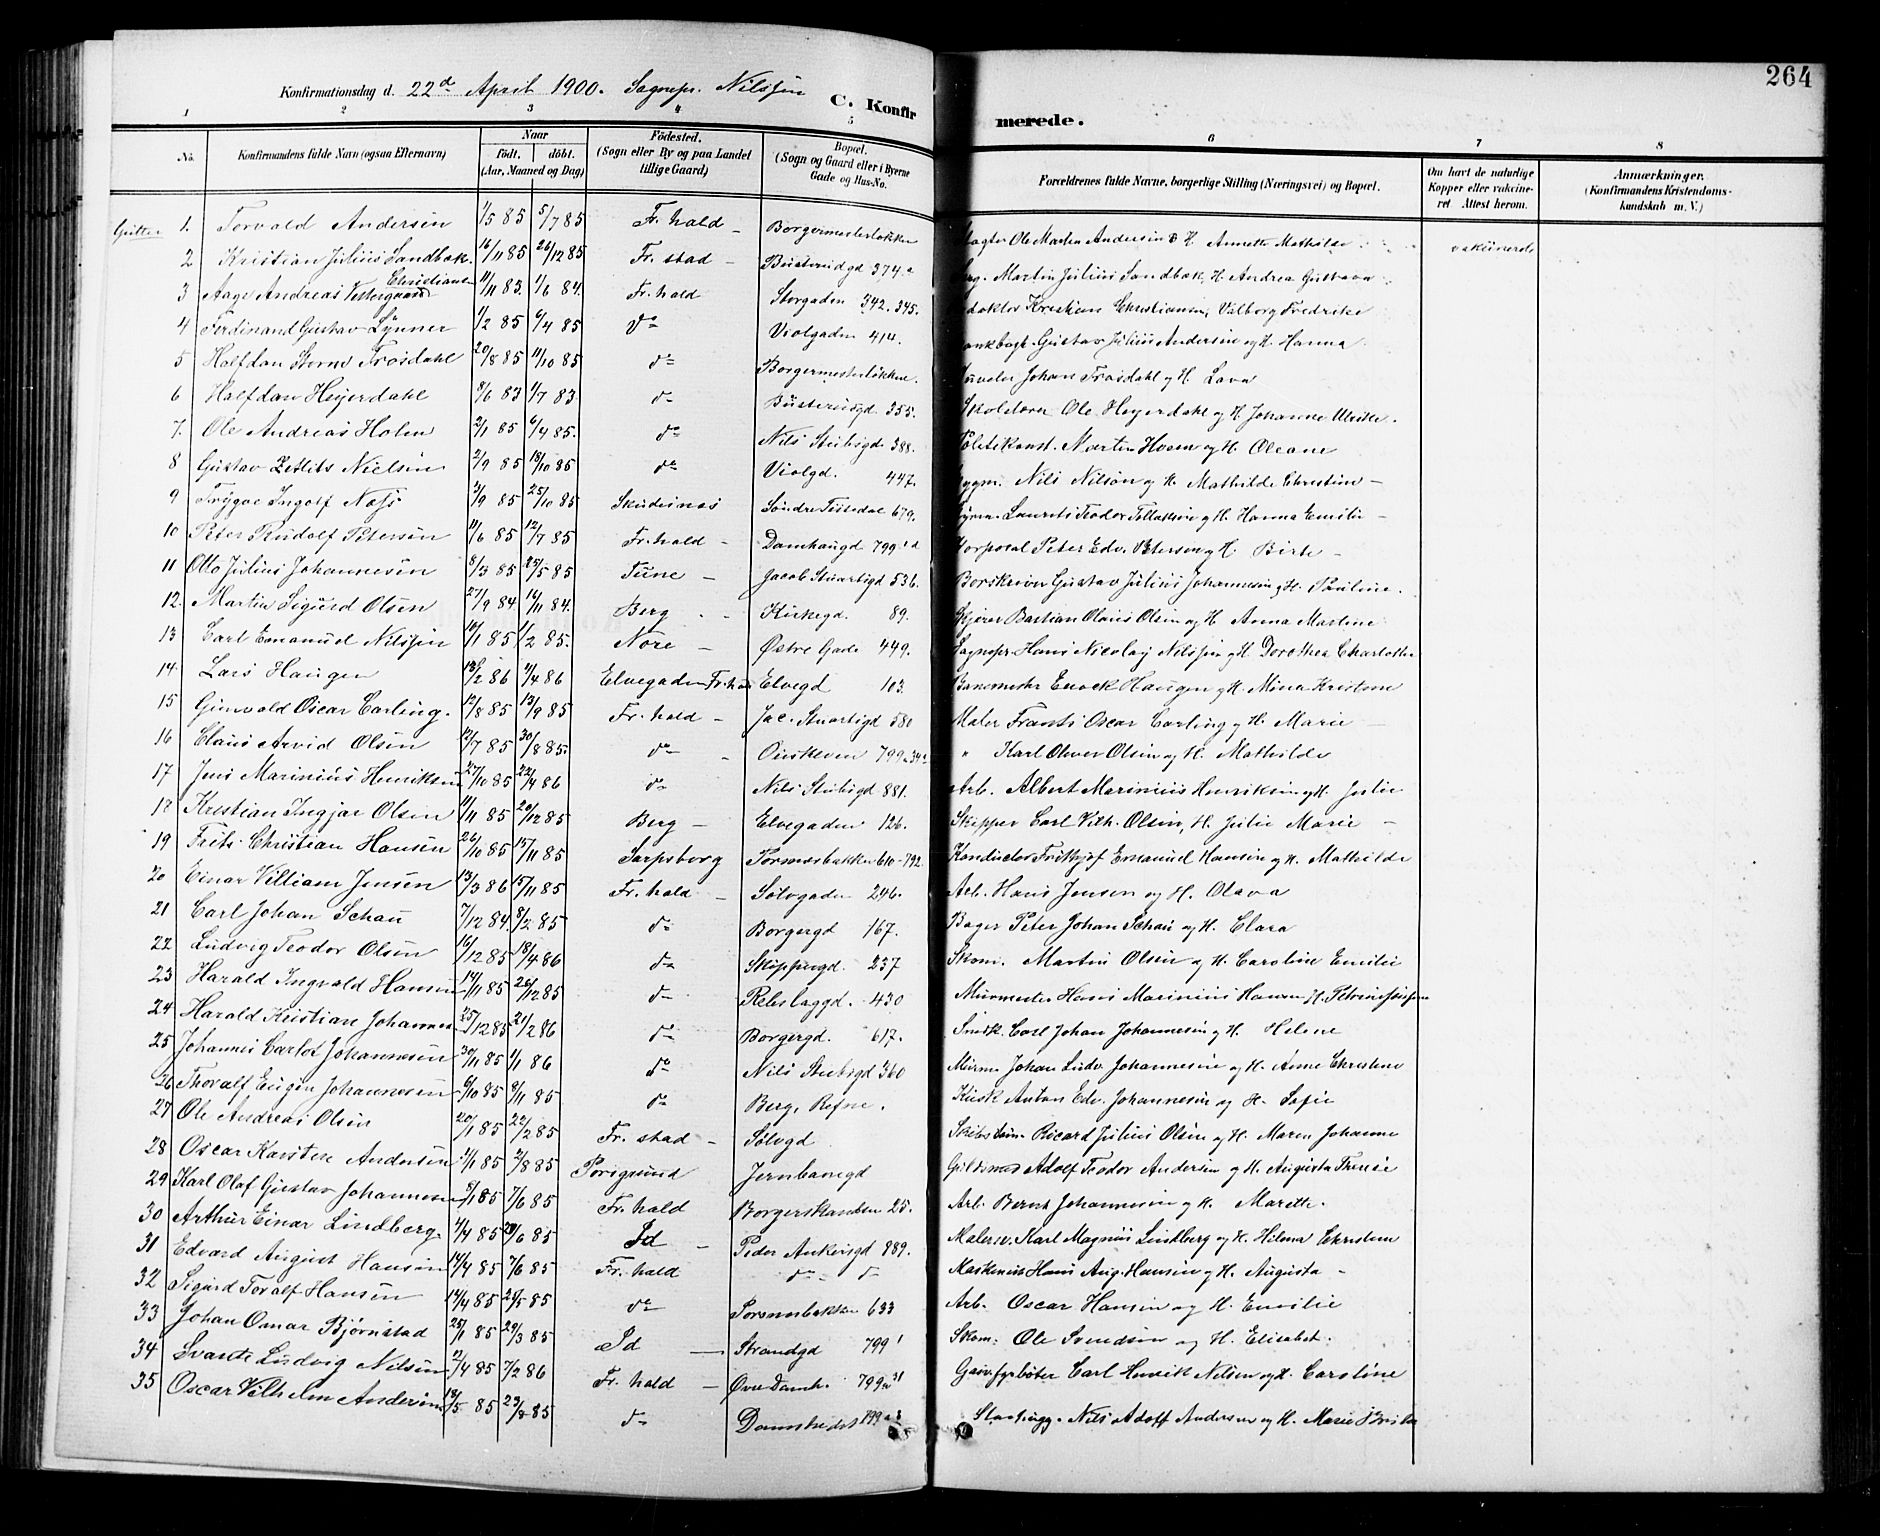 264
Konfirmationsdag d. 22d April 1900. Sognepr. Nilssen
C. Konfirmerede.
1 2 3 4 5 6 7 8
No. Konfirmandens fulde Navn (ogsaa Efternavn) Naar født. døbt. (Aar, Maaned og Dag) Fødested. (Sogn eller By og paa Landet tillige Gaard) Bopæl. (Sogn og Gaard eller i Byerne Gade og Hus-No. Forældrenes fulde Navne, borgerlige Stilling (Næringsvei) og Bopæl. Om havt de naturlige Kopper eller vaccineret Attest herom. Anmærkninger. (Konfirmandens Kristendomskundskab m. V.)
Gutter 1. Torvald Andersen 1/5 85 5/7 85 Fr. hald - Borgermesterløkken Ole Martin Andersen & H. Annette Mathilde vakcinerede
2 Kristian Julius Sandbæk 16/11 85 26/12 85 Fr. stad - Busterudgd 374 a Martin Julius Sandbæk, H. Andrea Gustava
3 Aage Andreas Vestergaard Christiansen 11/11 83. 1/6 84. Fr. hald Storgaden 342. 345. Kristian Christiansen, Valborg Fredrike
4 Ferdinand Gustav Lynner 1/2 85 6/4 85 do Violgaden 414. Gustav Julius Andersen og H. Hanna
5 Halfdan Trosdahl 20/8 85 11/10 85 do Borgermesterløkken Johan Trosdahl og H. Lava
6 Halfdan Heyerdahl 8/6 83 1/7 83 do Busterudgd. 355. Skolelærer Ole Heyerdahl og H. Johanne Ulrikke.
7. Ole Andreas Holen 2/1 85 6/4 85. do Nils Stubsgd 388. Politikonst. Martin Hoem og H. Oleane
8 Gustav Zetlits Nielsen 2/9 85 18/10 85 do Violgd. 447. Nils Nilsen og H. Mathilde Christine -
9 Trygve Ingolf Næss 3/9 85 25/10 85 Skudesnes Søndre Tistedal 679. Laurits Teodor Tollaksen og H. Hanna Emilie -
10 Peter Rudolf Petersen 11/6 85 12/7 85 Fr. hald - Damhaugd 799 1 a Korporal Peter Edv. Petersen og H. Birte -
11 Otto Julius Johannesen 8/3 85 25/5 85 Tune - Jacob Stuartsgd 536. Gustav Julius Johannesen og H. Pauline.
12. Martin Sigurd Olsen 27/9 84. 16/11 84. Berg Kirkegd. 89. Bastian Olaus Olsen og H. Anna Martine
13 Carl Emanuel Nilssen 10/1 85 1/2 85. Nore - Østre Gade 449. Sognepr. Hans Nicolay Nilssen og H. Dorothea Charlotte
14 Lars Haugen 13/2 86 4/4 86 Elvegaden Fr. hald Elvegd 103. Banemester Enock Haugen og H. Mina Kristine
15 Gunvald Oscar Carling. 12/8 85 13/9 85 Fr. hald - Jac. Stuartsgd 580 Maler Frants Oscar Carling og H. Marie
16 Claus Arvid Olsen 12/7 85 30/8 85. do - 799 a 34 a " Karl Oliver Olsen og H. Mathilde
17 Jens Marinius Henriksen 27/10 85 22/4 86 do Nils Stubsgd 881. Arb. Albert Marinius Henriksen og H. Julie
18 Kristian Ingjar Olsen 11/11 85 20/12 85 Berg - Elvegaden 126. Skipper Carl Vilh. Olsen, H. Julie Marie -
19 Frits Christian Hansen 26/10 85 15/11 85 Sarpsborg Tormesbakken 610-792 Konductør Frithjof Emanuel Hansen og H. Mathilde
20 Einar Villiam Jensen 13/3 86 15/11 85 Fr. hald - Sølvgaden 246. Arb. Hans Jensen og H. Olava
21 Carl Johan Schau 7/12 84. 8/2 85 do Borgergd 167. Bager Peter Johan Schau og H. Clara
22 Ludvig Teodor Olsen 16/12 85 18/4 86 do Skippergd. 237 Skom. Martin Olsen og H. Caroline Emilie
23 Harald Ingvald Hansen 14/11 85 26/12 85 do Rebslaggd. 430 Murmester Hans Marinius Hansen, H. Petrine
24 Harald Kristian Johannes. 25/12 85 21/2 86 do Borgergd. 617. Snedk. Carl Johan Johannesen og H. Helene
25 Johannes Carlot Johannesen 30/11 85 1/1 86 do Nils Stubsgd 360 Murm. Johan Ludv. Johannesen og H. Anne Christine
26 Thoralf Eugen Johannesen 6/10 85 8/11 85 do Berg, Refne. Kusk Anton Edv. Johannesen og H. Sofie
27 Ole Andreas Olsen 20/1 85 22/2 85 Fr. stad - Sølvgd Ricard Julius Olsen og H. Maren Johanne
28 Oscar Karsten Andersen 1/1 85 2/8 85 Porsgrund Jernbanegd Guldsmed Adolf Teodor Andersen og H. Augusta Therese
29 Karl Olaf Gustav Johannesen 8/1 85 7/6 85 Fr. hald Borgerskansen 25. Arb. Bernt Johannesen og H. Marette.
30 Arthur Einar Lindberg. 4/4 85 29/6 85 Id - Peder Ankersgd 889. Karl Magnus Lindberg og H. Hilma Christine
31 Edvard August Hansen 14/4 85 7/6 85 Fr. hald do - do Maskinist Hans Aug. Hansen og H. Augusta -
32 Sigurd Toralf Hansen 14/4 85 25/5 85 do Tormesbakken 633 Arb. Oscar Hansen og H. Emilie
33 Johan Omar Bjørnstad 25/1 85 29/3 85 Id - Strandgd 799 1 Skom. Ole Svendsen og H. Elisabet.
34 Svante Ludvig Nilsen 2/4 85 7/2 86 Fr. hald - Øvre Damh. 799 a 31 Carl Henrik Nilsen og H. Caroline
35 Oscar Vilhelm Andersen 13/5 85 23/8 85 do 799 a Nils Adolf Andersen og H. Marie